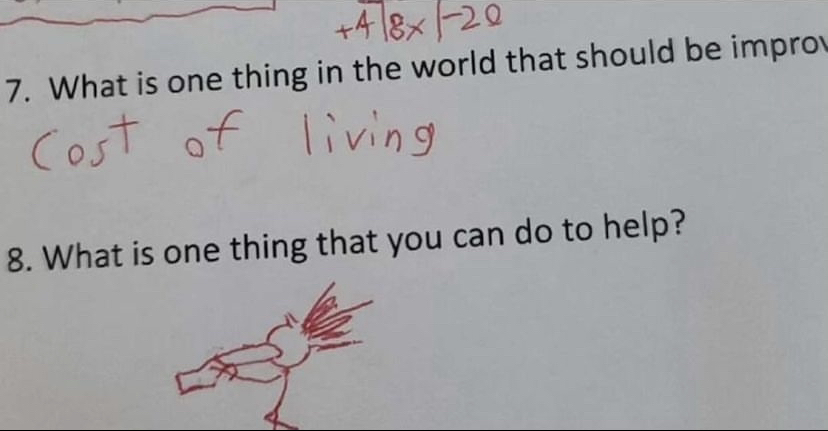 +4 | 8x | -20
7. What is one thing in the world that should be improv
Cost of living
8. What is one thing that you can do to help?